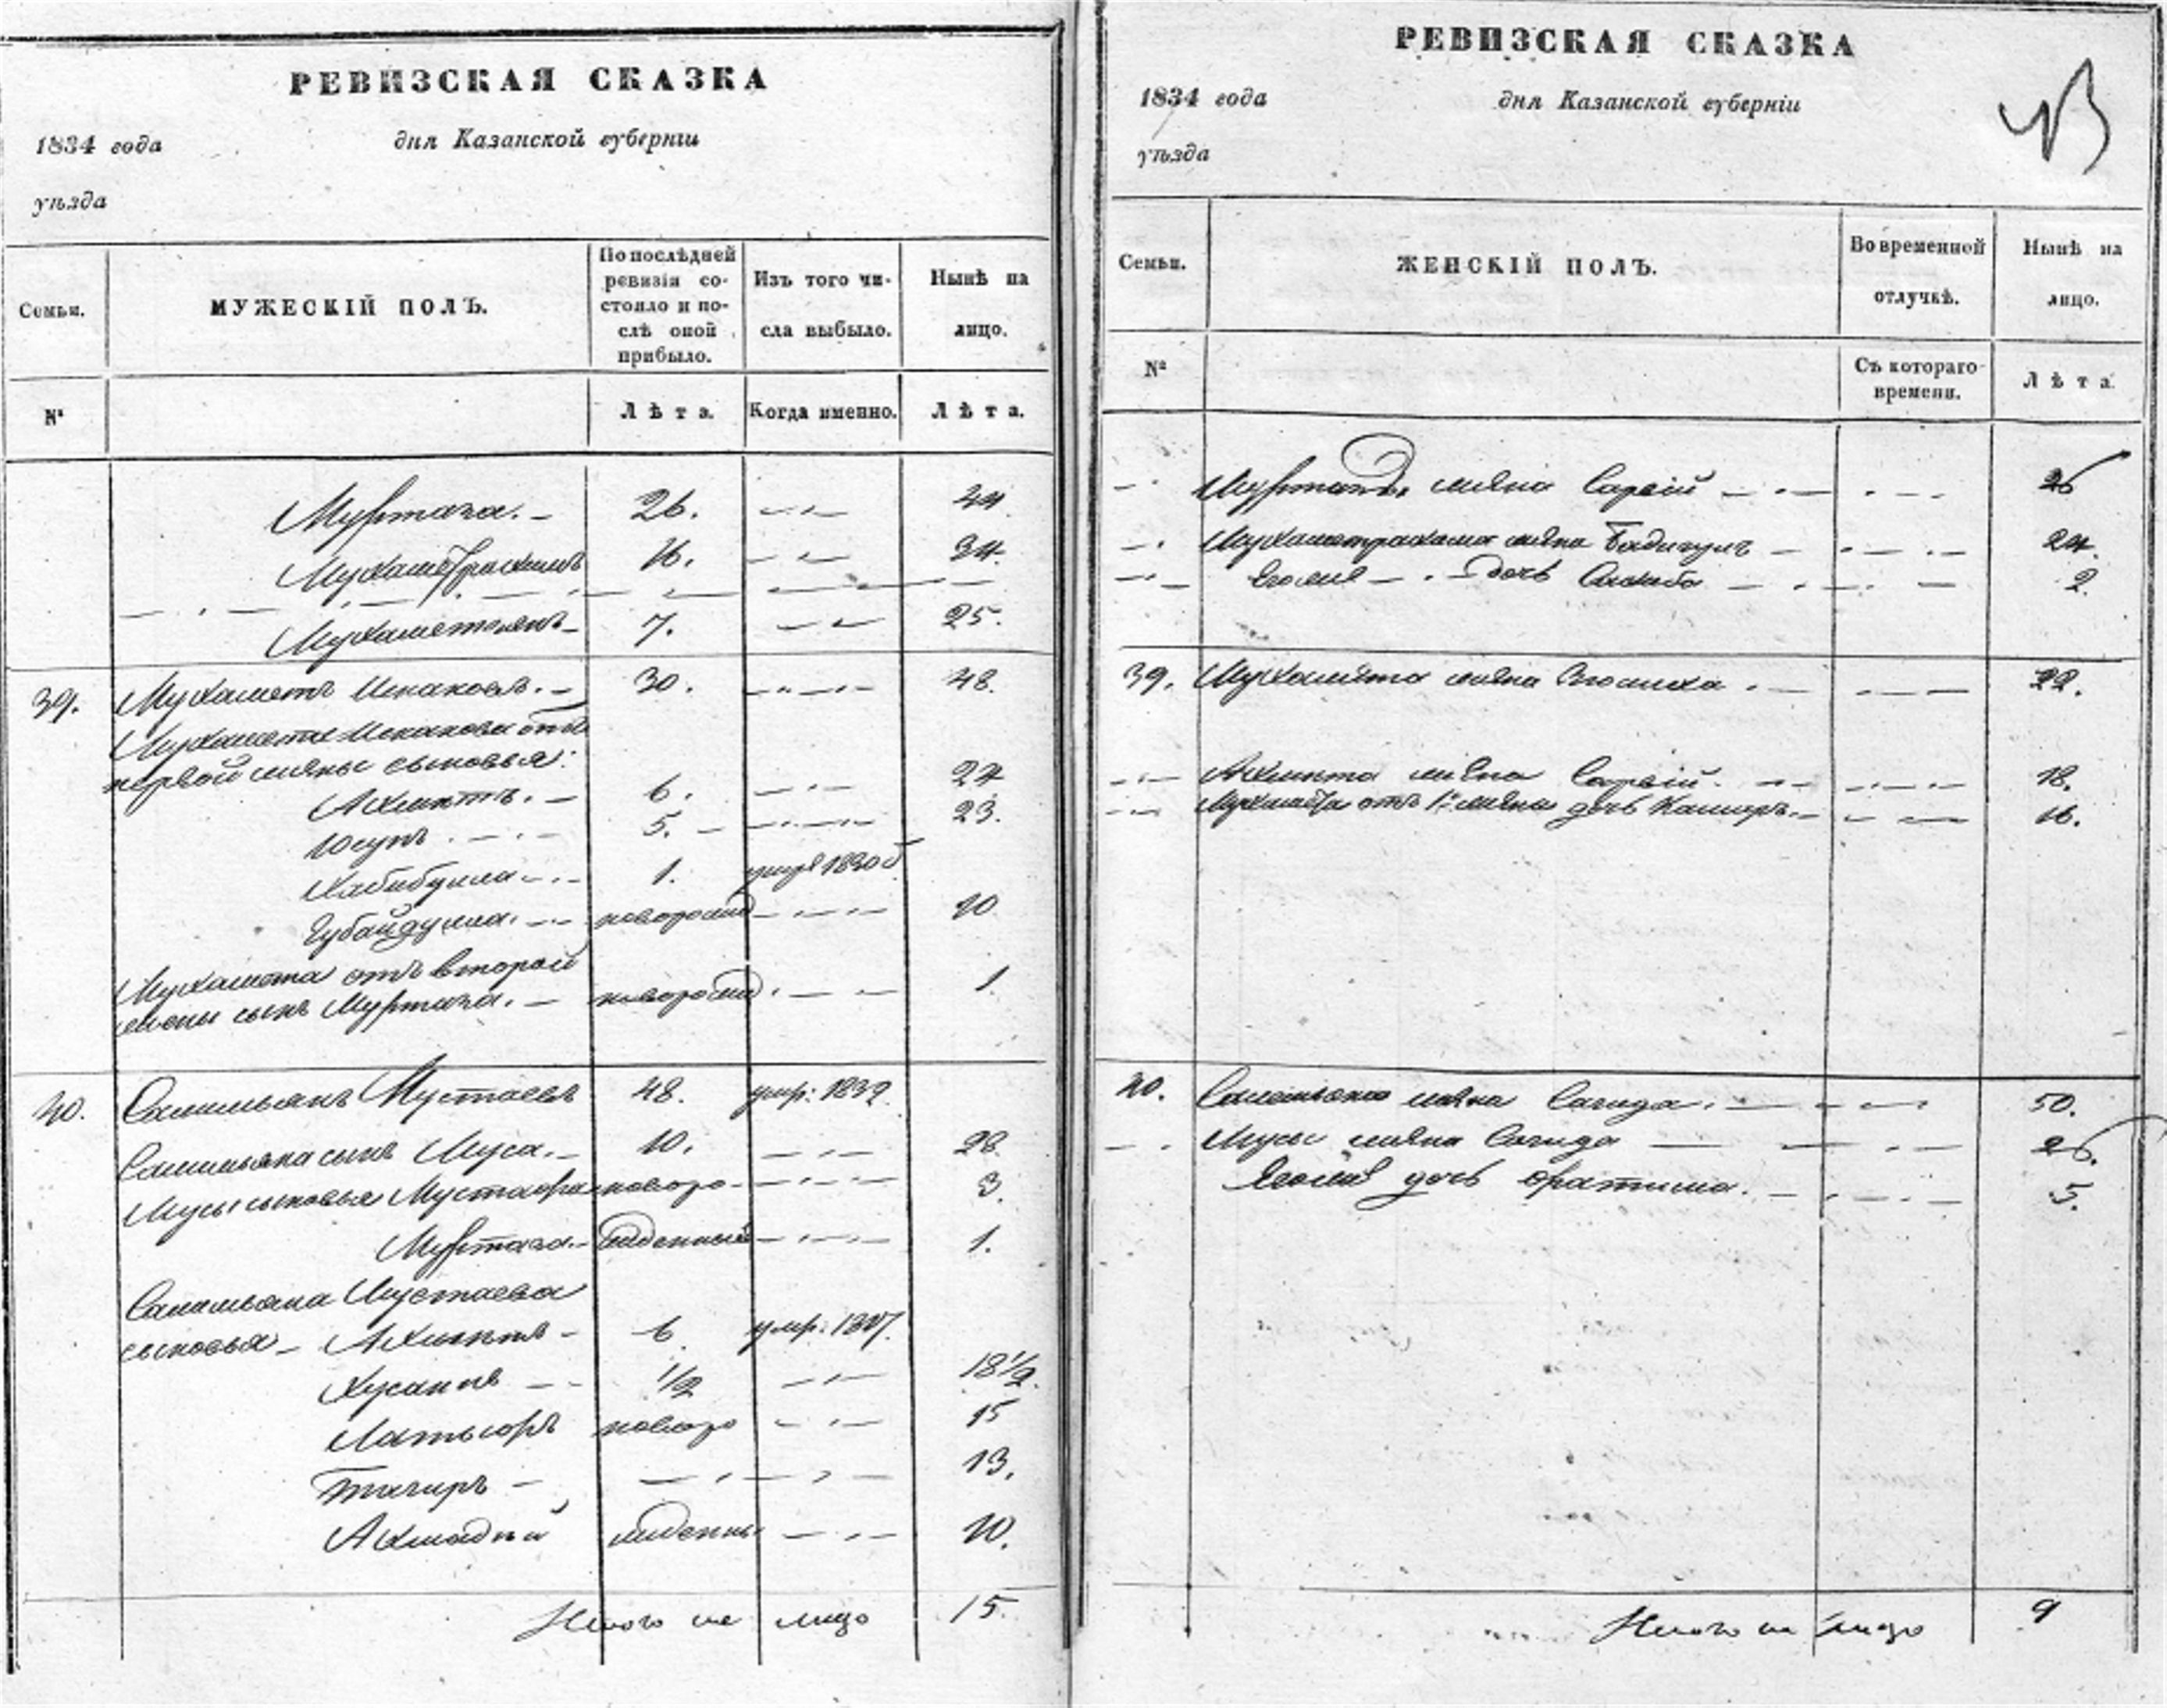 РЕВИЗСКАЯ СКАЗКА
1834 года дня Казанской губерніи
уѣзда
Семьи. МУЖЕСКІЙ ПОЛЪ. По послѣдней ревизіи состояло и послѣ оной прибыло. Изъ того числа выбыло. Нынѣ на лицо.
№ Лѣта. Когда именно. Лѣта.
Муртаза. 26. 44.
Мухаметрахимъ 16. 34.
Мухаметзянъ 7. 25.
39. Мухаметъ Искаковъ. 30. 48.
Мухамета Искакова отъ
первой жены сыновья:
Ахметъ. 6. 24
Юсупъ 5. 23.
Хабибулла 1. умре 1830
Губайдулла. новорожд 10
Мухамета отъ второй
жены сынъ Муртаза. новорожд. 1
40. Салимьянъ Мустаевъ 48. умр: 1832.
Салимьяна сынъ Муса. 10. 28.
Мусы сыновья Мустафа новоро 3.
Муртаза жденный 1.
Салимьяна Мустаева
сыновья Ахметъ 6 умр:
Хусаинъ 1/2 18 1/2.
новоро 15
Тагиръ 13.
Ахмадѣй жденны 10.
Итого на лицо 15.
РЕВИЗСКАЯ СКАЗКА
1834 года дня Казанской губерніи
уѣзда
Семьи. ЖЕНСКІЙ ПОЛЪ. Во временной отлучкѣ. Нынѣ на лицо.
№ Съ котораго времени. Лѣта.
Муртазы жена 26
Мухаметрахима жена Бадигулъ 24.
Его дочь 2.
39. Мухамета жена 22.
Ахмета жена 18.
Мухамета отъ 1й жены дочь 16.
40. Салимьяна жена Сагида. 50.
Мусы жена Сагида 26.
дочь Фатима. 5.
Итого на лицо 9